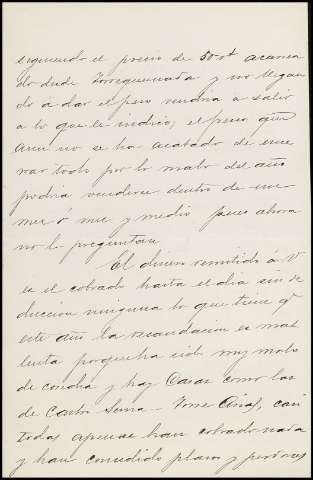 siguiendo el precio de 50 rs acarrea
do desde Torrequemada y no llegan
do a dar el peso vendria a salir
a lo que le indico; el pienso que
aun no se ha acabado de ence
rrar todo por lo malo del año
podria venderse dentro de un
mes ó mes y medio pues ahora
no lo preguntan
El dinero remitido á V
es el cobrado hasta el dia sin de
duccion ninguna lo que tiene qe
este año la recaudacion es mas
lenta porque ha sido muy malo
de cosecha y hay Casas como las
de Castro Serna - Torre Arias, casi
todas apenas han cobrado nada
y han concedido plazos y perdones